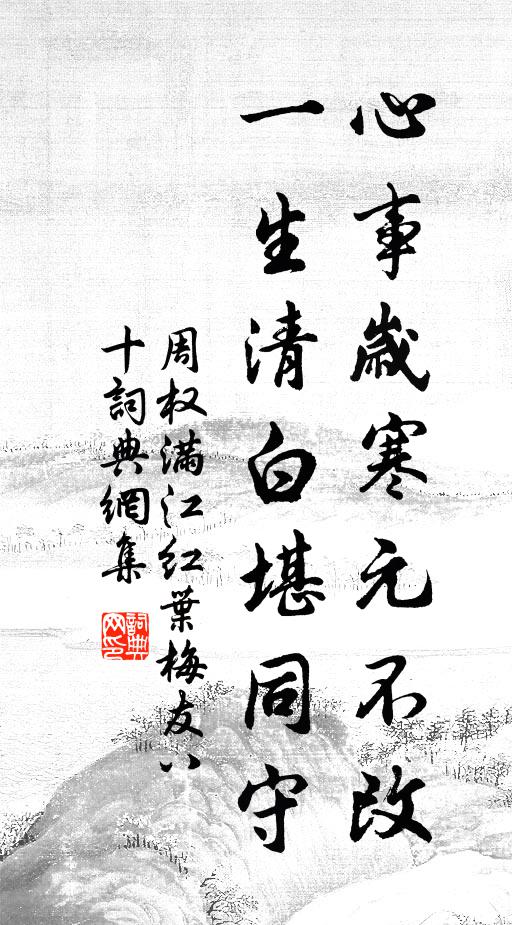 心事歲寒元不改
一生清白堪同守
周权滿江红葉梅友八
十詞典網集
詞典网印